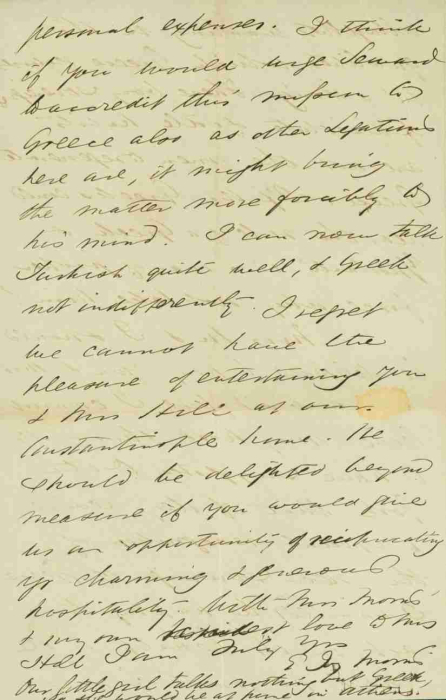 personal expenses. I think
if you would urge Seward
to accredit this mission to
Greece also as other Legations
here are, it might bring
the matter more forcibly to
his mind. I can now talk
Turkish quite well, & Greek
not indifferently. I regret
we cannot have the
pleasure of entertaining you
& Mrs Hill at our
Constantinople home. We
should be delighted beyond
measure if you would give
us an opportunity of reciprocating
yr charming & generous
hospitality. With Mrs Morris'
& my own love to Mrs
Hill I am truly yrs
E Joy Morris
Our little girl talks nothing but Greek,
would be at home in Athens.